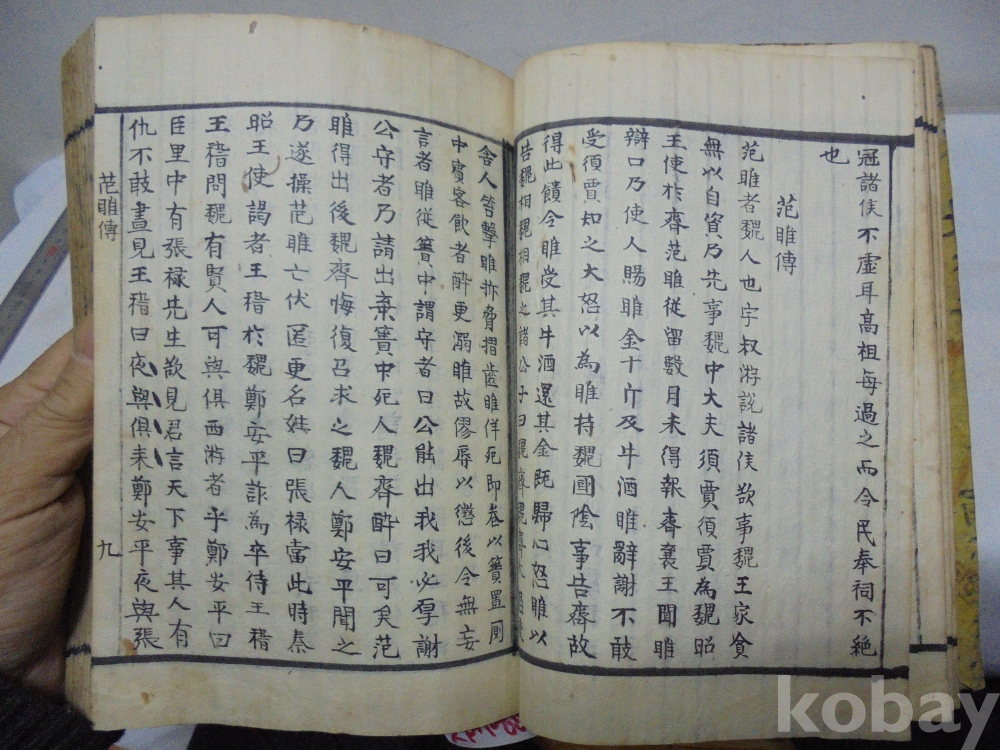 冠諸侯不虛耳高祖每過之而令民奉祠不絶
也
范睢傳
范睢者魏人也字叔游說諸侯欲事魏王家貧
無以自資乃先事魏中大夫須賈須賈為魏昭
王使於齊范睢從留數月未得報齊襄王聞睢
辯口乃使人賜睢金十斤及牛酒睢辭謝不敢
受須賈知之大怒以為睢持魏國陰事告齊故
得此饋令睢受其牛酒還其金既歸心怒睢以
告魏相魏相魏之諸公子曰魏齊魏齊大怒使
舍人笞擊睢折脅摺齒睢佯死即卷以簀置厠
中賓客飲者醉更溺睢故僇辱以懲後令無妄
言者睢從簀中謂守者曰公能出我我必厚謝
公守者乃請出棄簀中死人魏齊醉曰可矣范
睢得出後魏齊悔復召求之魏人鄭安平聞之
乃遂操范睢亡伏匿更名姓曰張祿當此時秦
昭王使謁者王稽於魏鄭安平詐為卒侍王稽
王稽問魏有賢人可與俱西游者乎鄭安平曰
臣里中有張祿先生欲見君言天下事其人有
仇不敢晝見王稽曰夜與俱来鄭安平夜與張
范睢傳
九
kobay